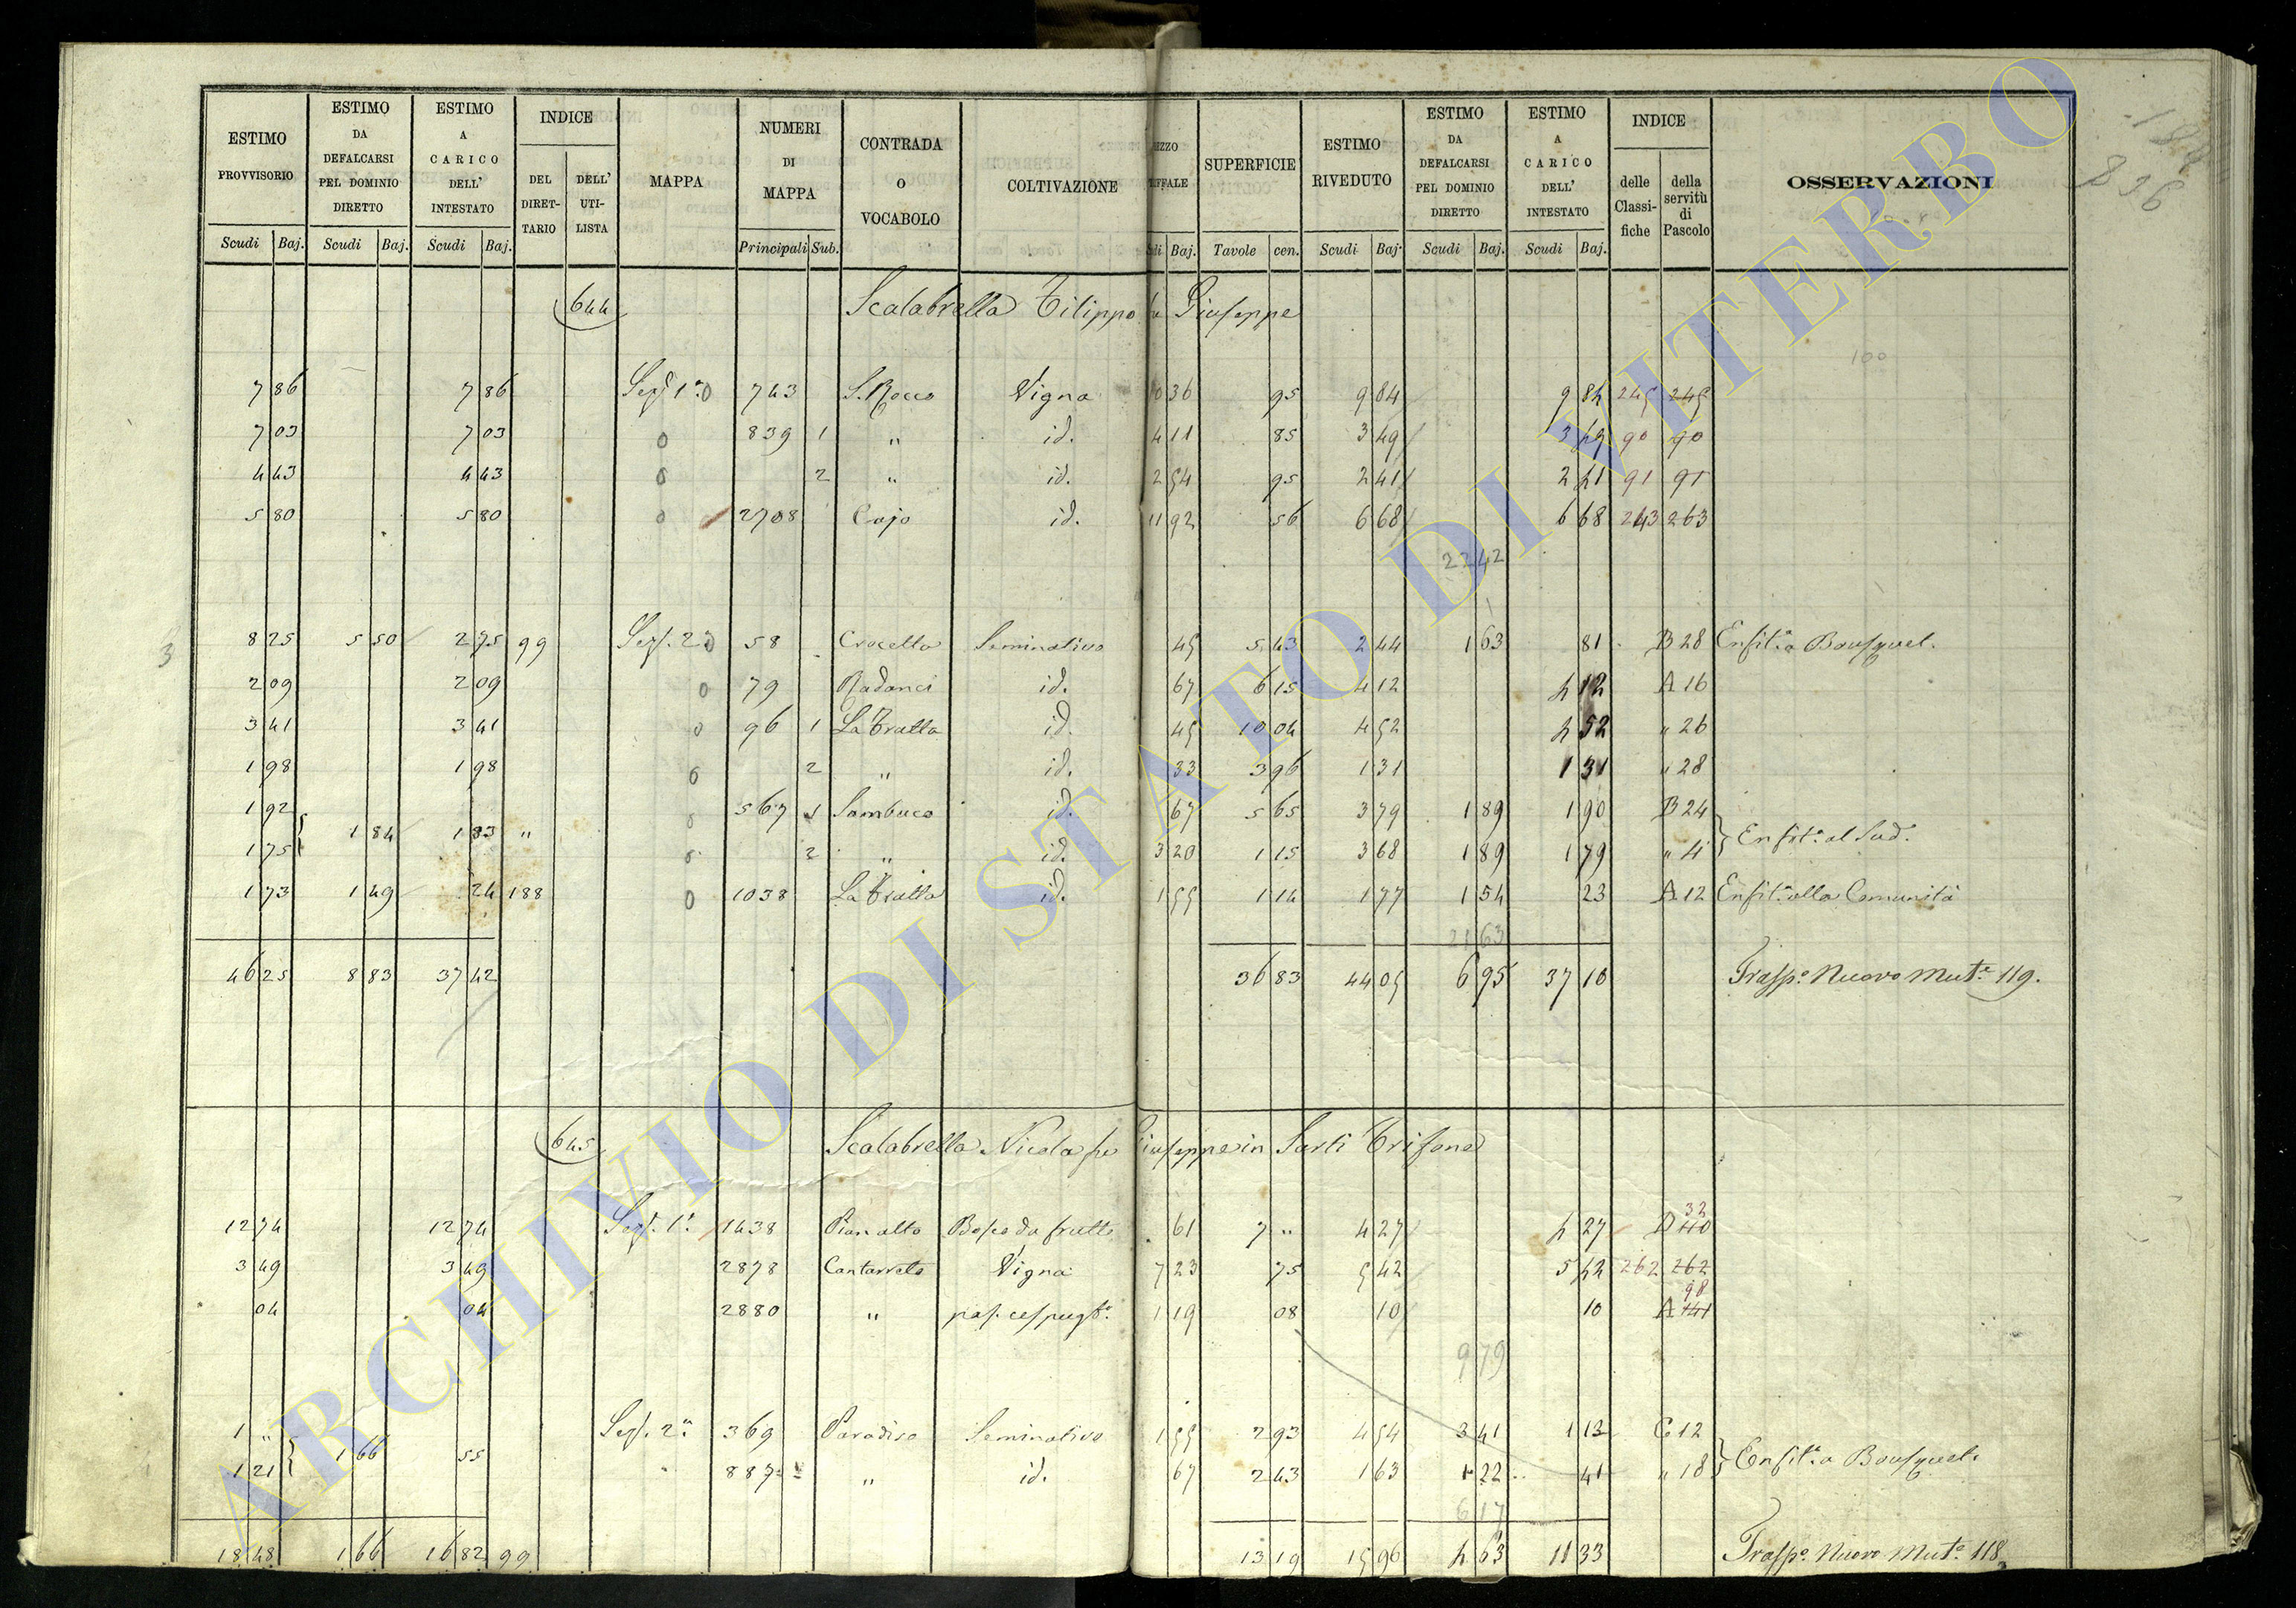 ESTIMO PROVVISORIO | ESTIMO DA DEFALCARSI PEL DOMINIO DIRETTO | ESTIMO A CARICO DELL' INTESTATO | INDICE DEL DIRETTARIO | DELL' UTILISTA | MAPPA | NUMERI DI MAPPA | CONTRADA O VOCABOLO | COLTIVAZIONE | SUPERFICIE | ESTIMO RIVEDUTO | ESTIMO DA DEFALCARSI PEL DOMINIO DIRETTO | ESTIMO A CARICO DELL' INTESTATO | INDICE delle Classifiche | della servitù di Pascolo | OSSERVAZIONI
Scudi Baj. Scudi Baj. Scudi Baj. Principali Sub. Baj. Tavole cen. Scudi Baj. Scudi Baj. Scudi Baj.
836
644 Scalabrella Filippo fu Giuseppe
100
7 86 7 86 Sez. 1a 0 743 S. Rocco Vigna 10 36 95 9 84 9 84 245 245
7 03 7 03 0 839 1 " id. 4 11 85 3 49 3 49 90 90
4 43 4 43 0 2 " id. 2 54 95 2 41 2 41 91 91
5 80 5 80 0 2708 Cajo id. 11 92 56 6 68 6 68 243 263
22 42
3
8 25 5 50 2 75 99 Sez. 2a 0 58 Crocetta Seminativo 45 5 43 2 44 1 63 81 B 28 Enfit.a a Bousquet.
2 09 2 09 0 79 Radanci id. 67 6 15 4 12 4 12 A 16
3 41 3 41 0 96 1 La Tratta id. 45 10 04 4 52 4 52 " 26
1 98 1 98 0 2 " id. 33 3 96 1 31 1 31 " 28
1 92 0 567 1 Sambuco id. 67 5 65 3 79 1 89 1 90 B 24
1 84 1 83 " Enfit.a al Sud.o
1 75 0 2 " id. 3 20 1 15 3 68 1 89 1 79 " 4
1 73 1 49 24 188 0 1038 La Tratta id. 1 55 1 14 1 77 1 54 23 A 12 Enfit.a alla Comunità
21 63
46 25 8 83 37 42 36 83 44 05 6 95 37 10 Trasp.o Nuovo Mut.e 119.
645 Scalabrella Nicola fu Giuseppe in Sarti Trifone
12 74 12 74 Sez. 1a 1438 Pian alto Bosco da frutto 61 7 " 4 27 4 27 D 40 32
3 49 3 49 2878 Cantarreto Vigna 7 23 75 5 42 5 42 262 262
04 04 2880 " pas. cespugt.o 1 19 08 10 10 A 141 98
9 79
1 " Sez. 2a 369 Paradiso Seminativo 1 55 2 93 4 54 3 41 1 13 C 12
1 66 55 Enfit.a a Bousquet.
1 21 887 " id. 67 2 43 1 63 1 22 41 " 18
6 17
18 48 1 66 16 82 99 13 19 15 96 4 63 11 33 Trasp.o Nuovo Mut.e 118.
ARCHIVIO DI STATO DI VITERBO